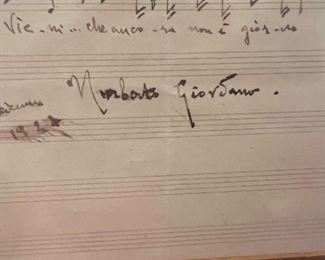 Vie-ni... che anco-ra non è gior-no
Umberto Giordano.
192